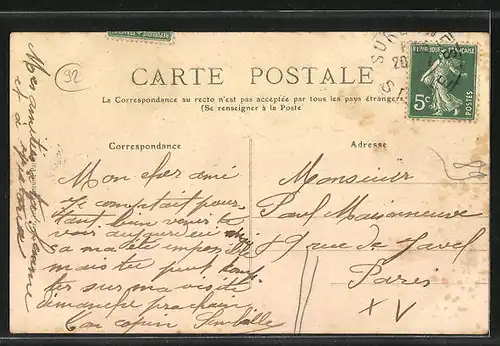 SURE
20
REPUBLIQUE FRANÇAISE
5c
POSTES
92
CARTE POSTALE
La Correspondance au recto n'est pas acceptée par tous les pays étrangers
(Se renseigner à la Poste
Correspondance
Adresse
Mon cher ami
Je comptait pour
tant bien venir te
voir aujourd'hui
sa m'a été impossible
mais tu peut comp
ter sur ma visite
dimanche prochain
Ton copain
Mes amitiés a ta femme
et a
Monsieur
Paul Maisonneuve
rue de Javel
Paris
XV